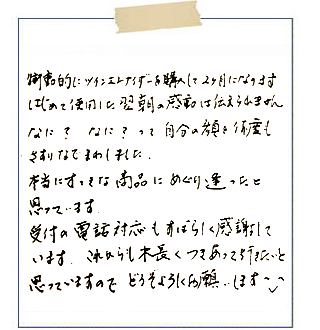 衝動的にツインエレナイザーを購入して2ヶ月になります
はじめて使用した翌朝の感動は伝えられません
なに？なに？って自分の顔を何度も
さすりなでまわしました。
本当にすてきな商品にめぐり逢ったと
思っています。
受付の電話対応もすばらしく感謝して
います。これからも末長くつきあって行きたいと
思っていますのでどうぞよろしくお願いします〜